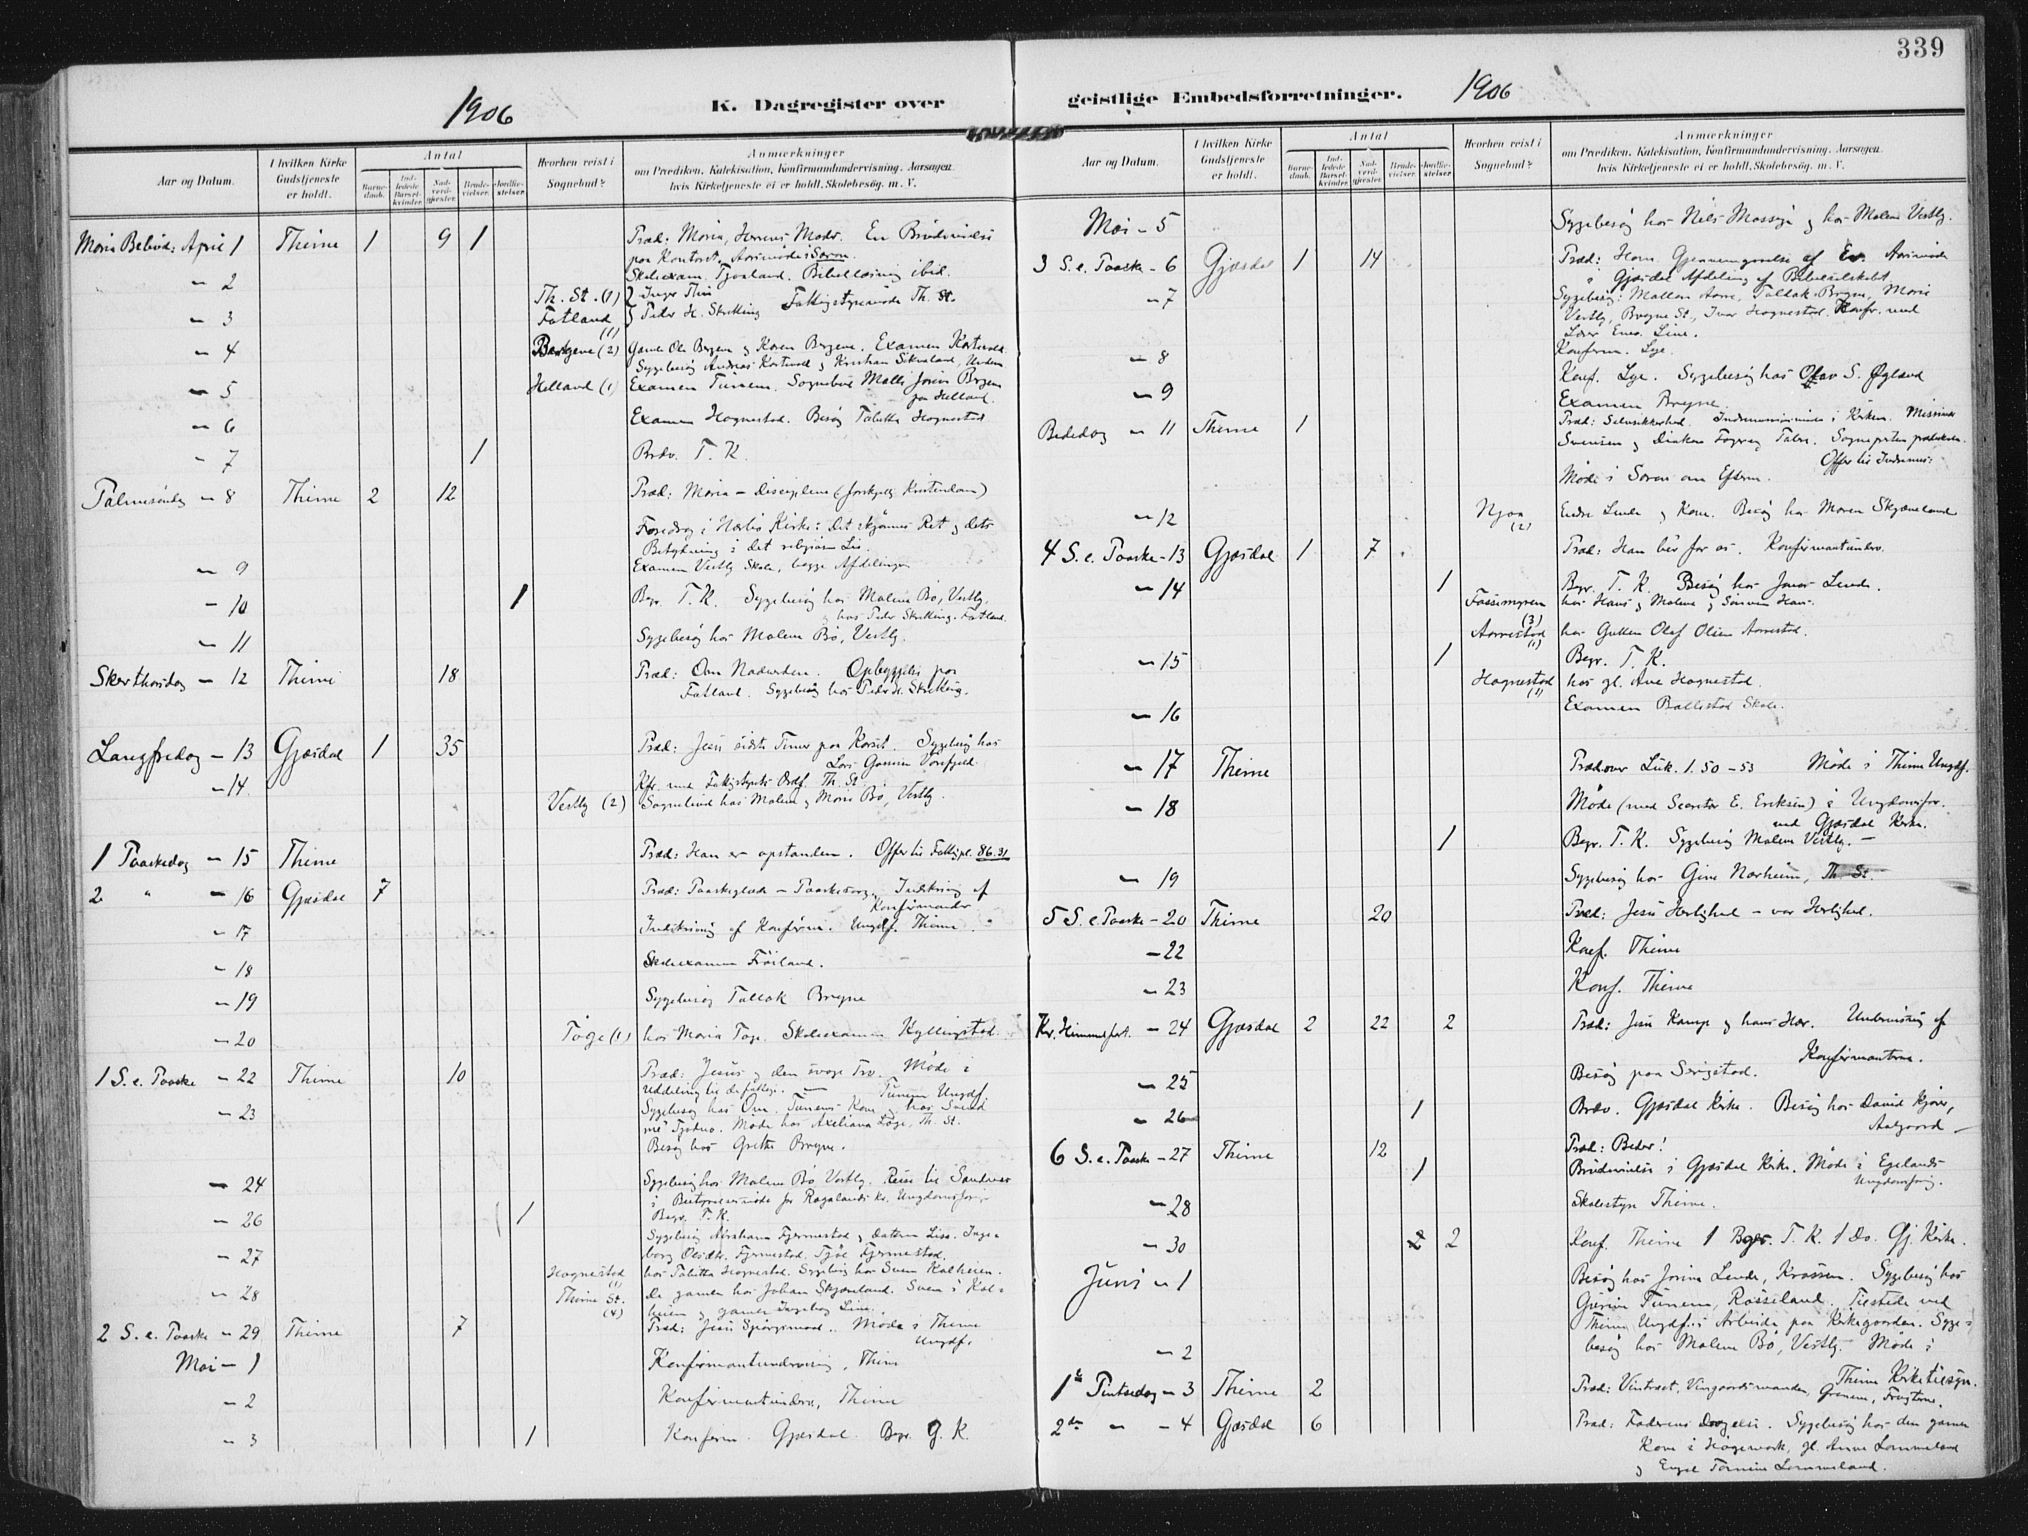 339
1906
K. Dagregister over
geistlige Embedsforretninger.
1906
Aar og Datum.
I hvilken Kirke Gudstjeneste er holdt.
Antal
Barnedaab.
Indledede Barselkvinder.
Nadverdgjester.
Brudevielser.
Jordfæstelser.
Hvorhen reist i Sognebud?
Anmærkninger
om Prædiken, Katekisation, Konfirmandundervisning, Aarsagen
hvis Kirketjeneste ei er holdt, Skolebesøg, m. V.
Maria Bebud: April 1 Thime 1 9 1 Præd: Maria, Herrens Moder. En Brudevielse
paa Kontoret. Aarsmøde i Soron.
" 2 Skoleexam. Tjaaland. Bibellæsning ibid.
Th. St. (1) Inger Thu
" 3 Fatland (1) Peder H. Skretting Fattigstyremøde Th. St.
" 4 Berkjene (2) Gamle Ole Bergene og Karen Bergene. Examen Kartevold
Sygebesøg Andreas Kartevold og Kristian Sikvaland, Undem
" 5 Helland (1) Examen Tunem. Sognebud Malli Josine Bryne
paa Helland.
" 6 Examen Hognestad. Besøg Tabitta Hognestad
" 7 1 Brdv. T. K.
Palmesøndag " 8 Thime 2 12 Præd: Maria – disciplene (forskjellig Kristendom)
Foredrag i Nærbø Kirke: det skjønnes Ret og dets
Betydning i det religiøse Liv.
" 9 Examen Vestly Skole, begge Afdelinger
" 10 1 Begr. T. K. Sygebesøg hos Malene Bø, Vestly.
og hos Peder Skretting, Fatland.
" 11 Sygebesøg hos Malene Bø, Vestly.
Skærthorsdag " 12 Thime 18 Præd: Om Nadverden. Opbyggelse paa
Fatland. Sygebesøg hos Peder H. Skretting.
Langfredag " 13 Gjæsdal 1 35 Præd: Jesu sidste Timer paa Korset. Sygebesøg hos
" 14 Kfr. med Fattigstyrets Ordf. Th. St.
Vestly (2) Sognebud hos Malene og Marie Bø, Vestly.
1 Paaskedag " 15 Thime Præd: Han er opstanden. Offer til Fattigpl. 86.31
2 " " 16 Gjæsdal 7 Præd: Paaskeglæde – Paaskesorg. Indskrivning af
Konfirmander
" 17 Indskrivning af Konfirm. Ungdf. Thime.
" 18 Skoleexamen Frøiland.
" 19 Sygebesøg Tallak Bryne
" 20 Tøge (1) hos Maria Tøge. Skoleexamen Kyllingstad.
1 S. e. Paaske " 22 Thime 10 Præd: Jesus og den svage Tro. Møde i
uddeling til de fattige. – Tunem Ungdf
" 23 Sygebesøg hos Om. Tunems Kone og hos Svend
Møde hos Axeliana Tøge, Th. St.
Besøg hos Grethe Bryne.
" 24 Sygebesøg hos Malene Bø Vestly. Reise til Sandnes
i Bestyrelsesmøde for Rogalands kr. Ungdomsforbund
" 26 1 Begr. T. K.
Sygebesøg Abraham Fjermestad og Datteren Lisa. Inge-
" 27 borg Fjermestad. Fjermestad.
Hognestad (1) hos Tabitta Hognestad. Sygebesøg hos Svem Kalheien.
" 28 Thime St. (4) de gamle hos Johan Skjæveland. Svem i Kal-
heien og gamle Ingeborg Line.
2 S. e. Paaske " 29 Thime 7 Præd: Jesu Spørgsmaal. Møde i Thime
Ungdf.
Mai " 1 Konfirmantundervisning, Thime
" 2 Konfirmantunderv., Thime
" 3 1 Konfirm. Gjæsdal. Begr. G. K.
Aar og Datum.
I hvilken Kirke Gudstjeneste er holdt.
Antal
Barnedaab.
Indledede Barselkvinder.
Nadverdgjester.
Brudevielser.
Jordfæstelser.
Hvorhen reist i Sognebud?
Anmærkninger
om Prædiken, Katekisation, Konfirmandundervisning, Aarsagen
hvis Kirketjeneste ei er holdt, Skolebesøg, m. V.
Mai " 5 Sygebesøg hos Nils Mossige og hos Malene Vestly.
3 S. e. Paaske " 6 Gjæsdal 1 14 Præd: Havn. Gjennemgaaelse af Ev. Aarsmøde
i Gjæsdal Afdeling af Bibelselskabet
" 7 Sygebesøg: Mallene Aarre, Tallak Bryne, Marie
Vestly, Bryne St., Ivar Hognestad. Konfr. med
Lærer Line.
" 8 Konfirm. Lye.
" 9 Konf. Lye. Sygebesøg hos Olav S. Øgland
Examen Bryne.
Bededag " 11 Thime 1 Præd: Selvsikkerhed. Indremissionsmøde i Kirken. Missionær
Svensen og Diakon Fagervig Taler. Sognepresten prædikede.
Offer til Indremis:
Møde i Soron om Efterm.
" 12 Njaa (2) Endre Lende og Kone. Besøg hos Maren Skjæveland
4 S. e. Paaske " 13 Gjæsdal 1 7 Præd: Han bør for os. Konfirmantunderv.
" 14 1 Begr. T. K. Besøg hos Jonas Lende.
Fossemyren (3) hos Hans og Malene og Sønnen Hans.
Aarrestad (1) hos Gutten Olaf Olsen Aarrestad.
" 15 1 Begr. T. K.
Hognestad (1) hos gl. Ane Hognestad.
" 16 Examen Ballestad Skole.
" 17 Thime Præd. over Luk. 1. 50 – 53 Møde i Thime Ungdf.
" 18 Møde (med Secretær E. Eriksen) i Ungdomsfor.
ved Gjæsdal Kirke.
1 Begr. T. K. Sygebesøg Malene Vestly. –
" 19 Sygebesøg hos Gine Norheim, Th. St.
5 S. e. Paaske " 20 Thime 20 Præd: Jesu Herlighed – vor Herlighed.
" 22 Konf. Thime
" 23 Konf. Thime
Kr. Himmelfart. " 24 Gjæsdal 2 22 2 Præd: Jesu Kamp og hans Hær. Undervisning af
Konfirmanterne.
" 25 Besøg paa Serigstad.
" 26 1 Brdv. Gjæsdal Kirke. Besøg hos David Kjøver,
Aalgaard –
6 S. e. Paaske " 27 Thime 12 Præd: Beder!
1 Brudevielse i Gjæsdal Kirke. Møde i Egelands
Ungdomsforg.
" 28 Skolestyre Thime.
" 30 2 2 Konf. Thime 1 Begr. T. K. 1 Do. Gj. Kirke.
Juni " 1 Besøg hos Jorina Lende, Krossen. Sygebesøg hos
Gurine Tunem, Rosseland. Tilstede ved
Thime Ungdf. i Arbeide paa Kirkegaarden. Syge-
" 2 besøg hos Malene Bø, Vestly. Møde i
Thime Kirketilsyn.
1ste Pintsedag " 3 Thime 2 Præd: Vintræet, Vingaardsmanden, Grenene, Frugterne.
2den " " 4 Gjæsdal 6 Præd: Faderens Dragelse. Sygebesøg hos den gamle
Kone i Høgemork, gl. Anne Lommeland
og Engel Tomine Lommeland.